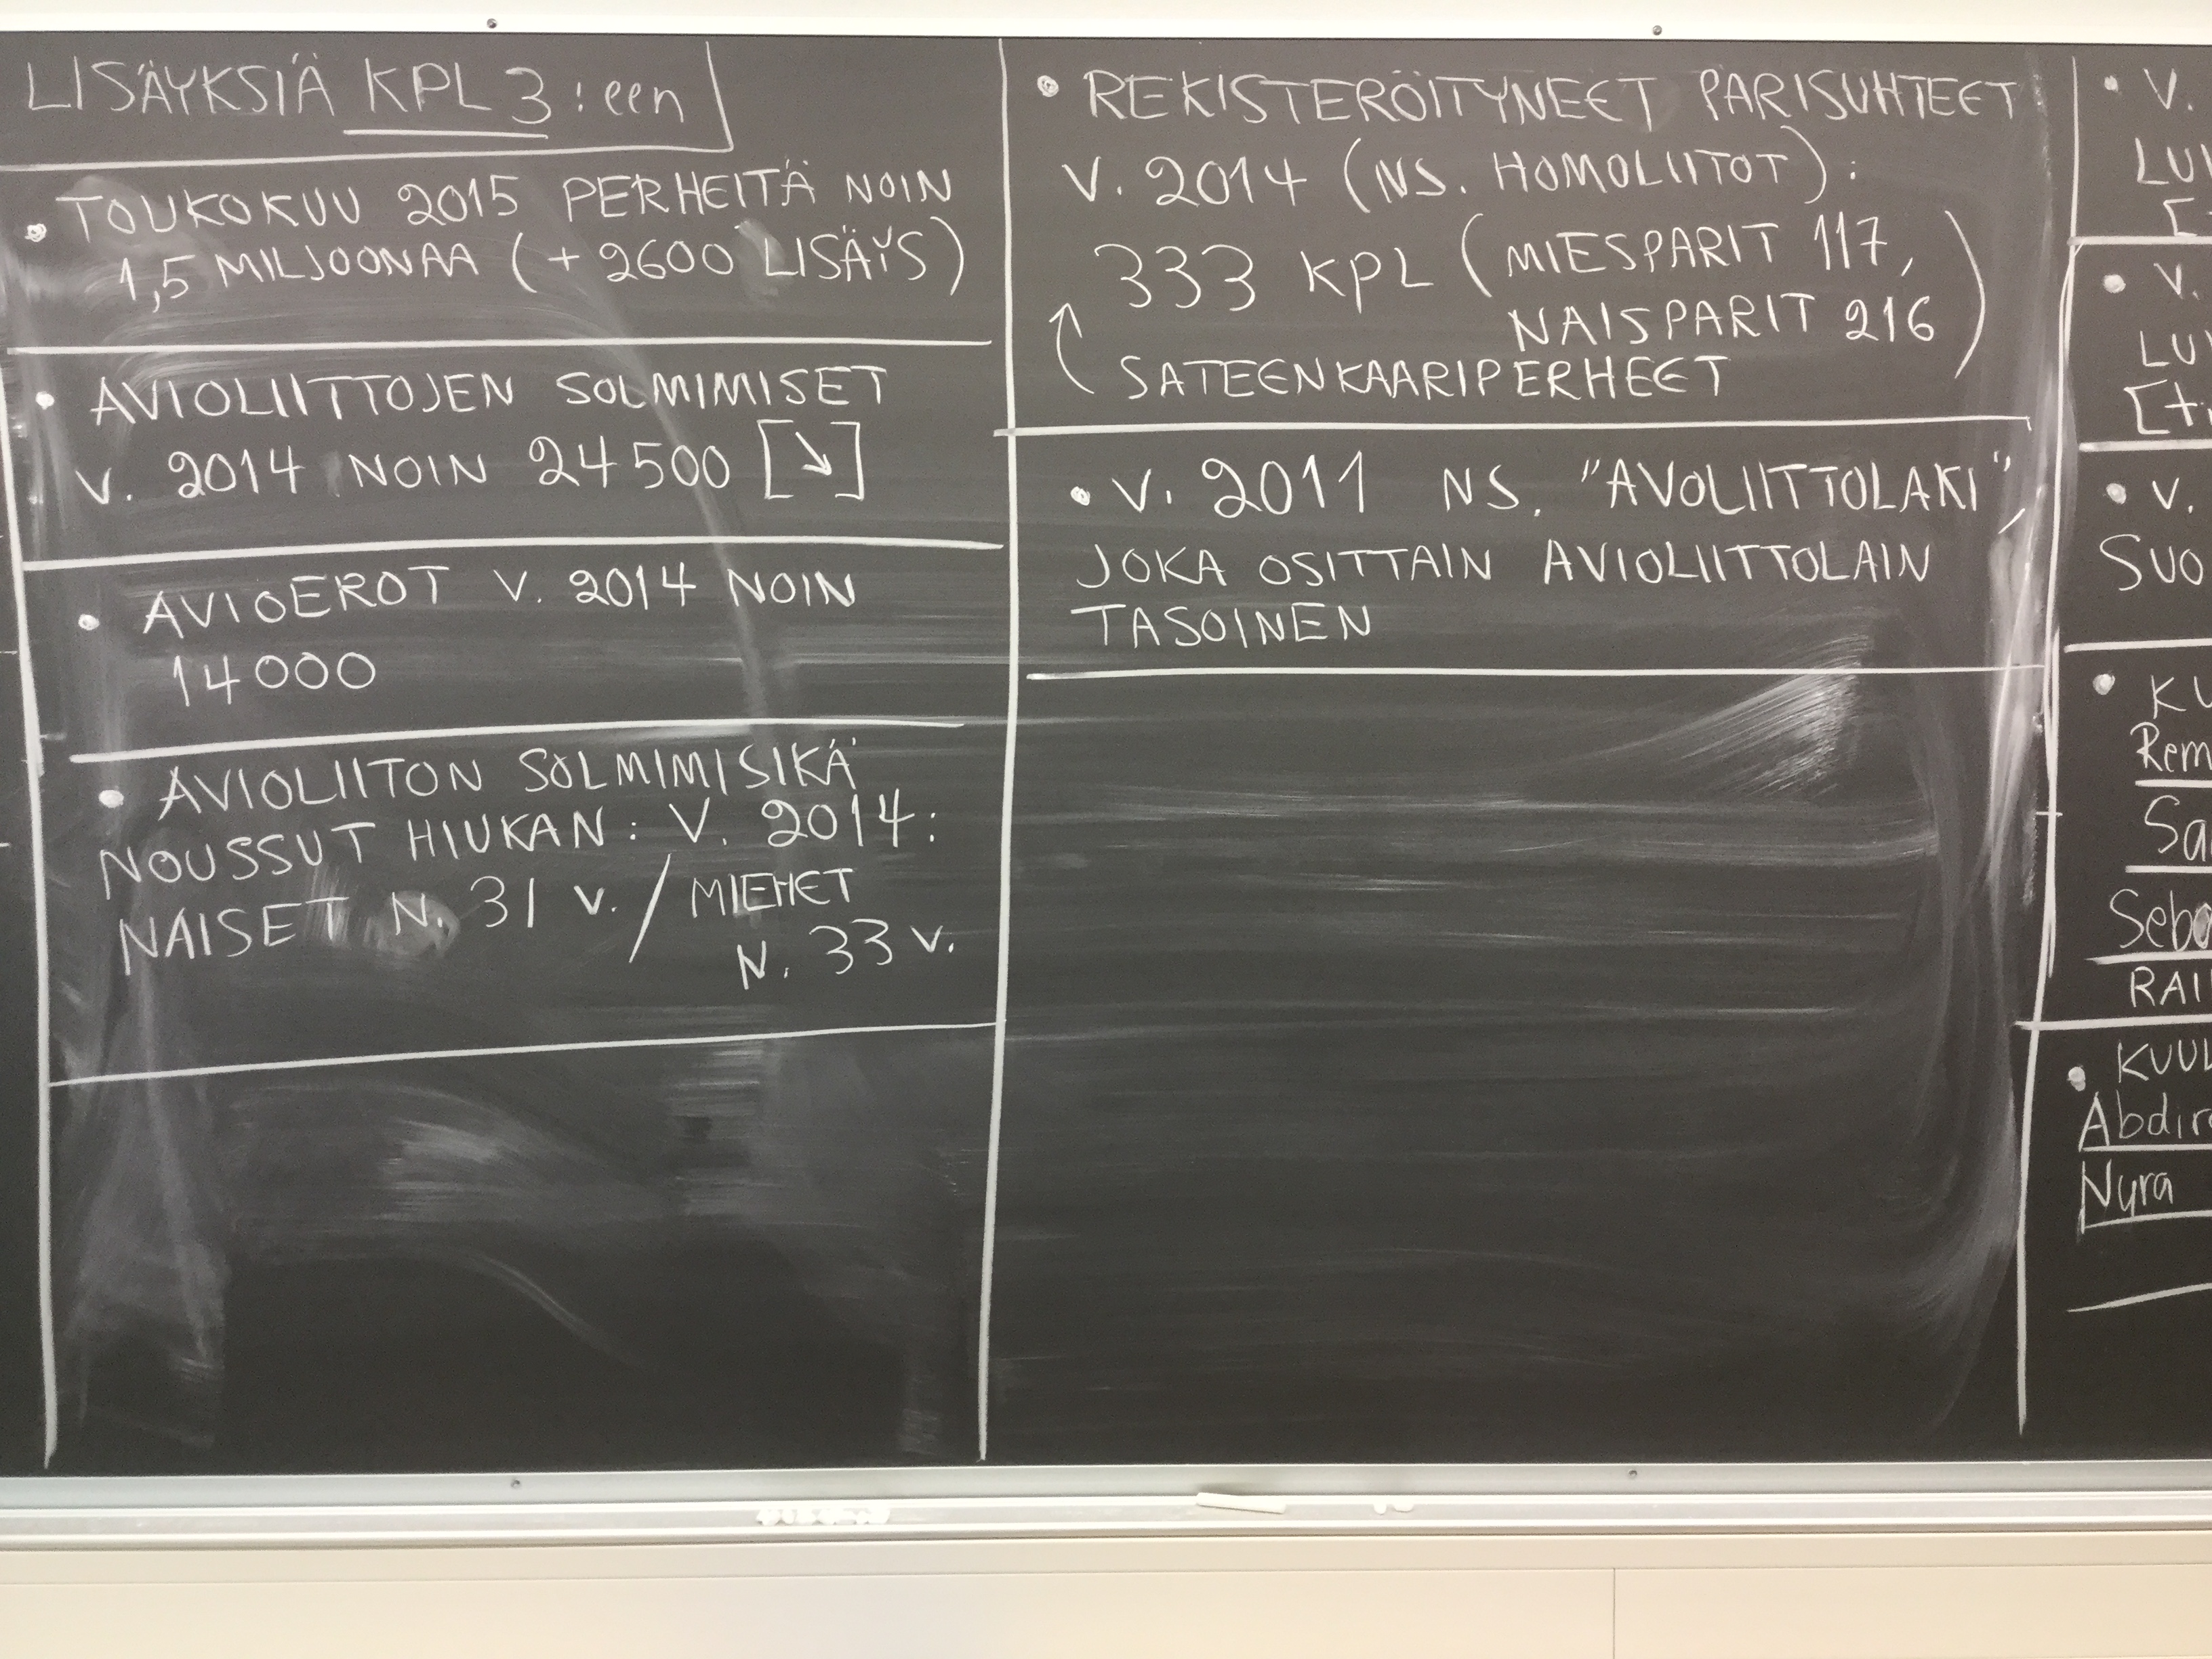 LISÄYKSIÄ KPL 3:een
• TOUKOKUU 2015 PERHEITÄ NOIN
1,5 MILJOONAA (+2600 LISÄYS)
• AVIOLIITTOJEN SOLMIMISET
V. 2014 NOIN 24500 [↘]
• AVIOEROT V. 2014 NOIN
14000
• AVIOLIITON SOLMIMISIKÄ
NOUSSUT HIUKAN: V. 2014:
NAISET N. 31 V. / MIEHET
N. 33 V.
• REKISTERÖITYNEET PARISUHTEET
V. 2014 (NS. HOMOLIITOT):
333 KPL (MIESPARIT 117,
NAISPARIT 216)
↑ SATEENKAARIPERHEET
• V. 2011 NS. "AVOLIITTOLAKI",
JOKA OSITTAIN AVIOLIITTOLAIN
TASOINEN
• V.
• V.
• V.
SUO
• KU
Rem
Sa
Seb
RAI
• KUUL
Abdir
Nyra